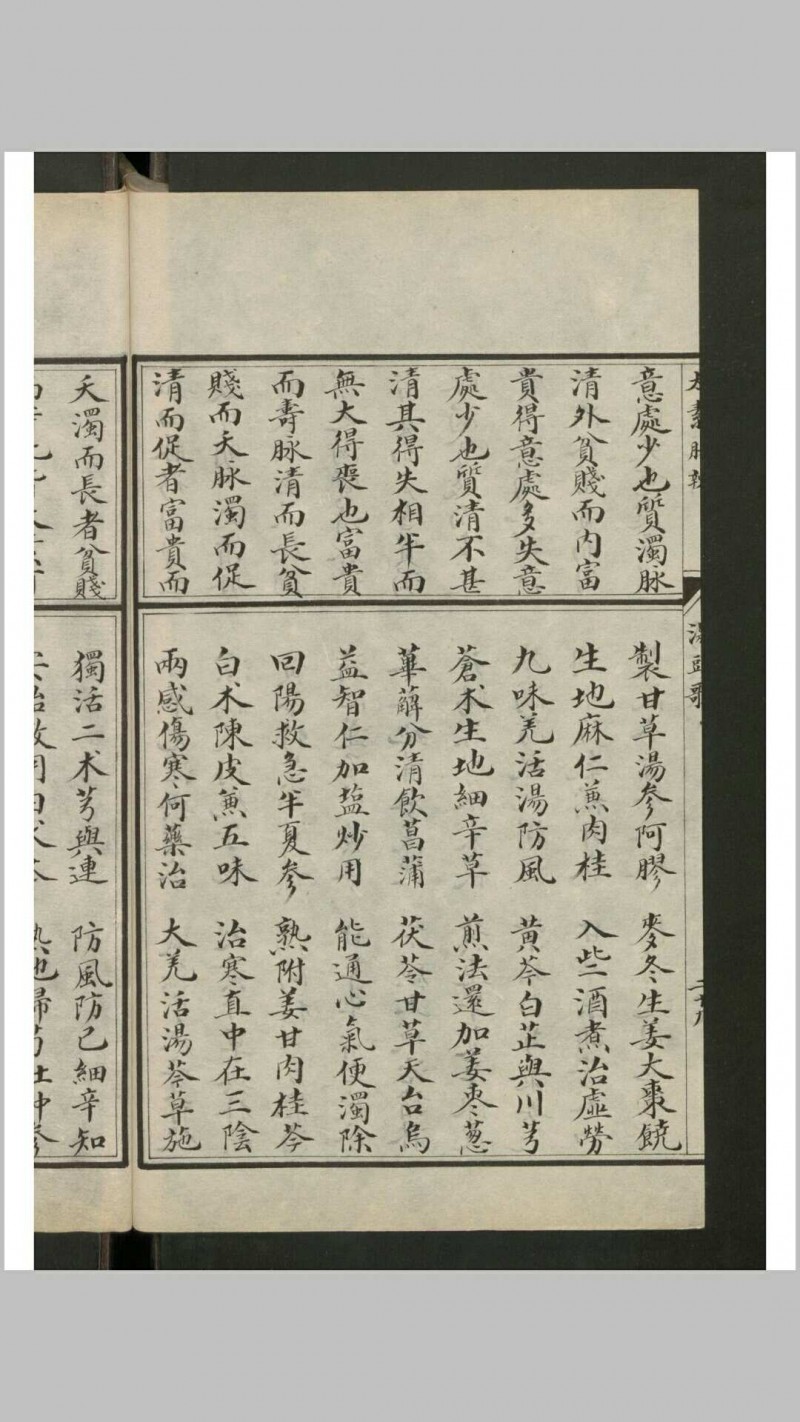 太素脉
意處少也質濁脉
清外貧賤而内富
貴得意處多失意
處少也質清不甚
清其得失相半而
無大得喪也富貴
而壽脉清而長貧
賤而夭脉濁而促
清而促者富貴而
夭濁而長者貧賤
湯頭歌
二十八
製甘草湯參阿膠　麥冬生姜大棗饒
生地麻仁蒹肉桂　入些酒煮治虛勞
九味羌活湯防風　黄芩白芷與川芎
蒼术生地細辛草　煎法還加姜枣葱
萆薢分清飲菖蒲　茯苓甘草天台烏
益智仁加盐炒用　能通心氣便濁除
回陽救急半夏參　熟附姜甘肉桂芩
白术陳皮蒹五味　治寒直中在三陰
兩感傷寒何藥治　大羌活湯芩草施
獨活二术芎與連　防風防已細辛知